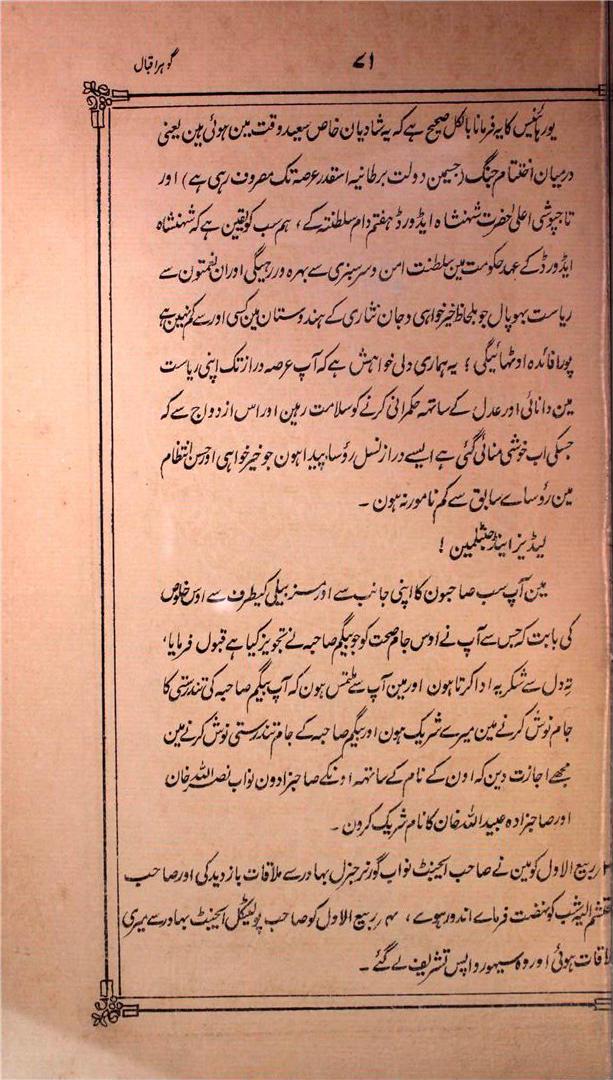 گوہر اقبال
۷۱
یورہائنس کا یہ فرمانا بالکل صحیح ہے کہ یہ شادیان خاص سعید وقت مین ہوئی ہین یعنی
درمیان اختتام جنگ (جسمین دولت برطانیہ اسقدر عرصہ تک مصروف رہی ہے) اور
تاجپوشی اعلیٰحضرت شہنشاہ ایڈورڈ ہفتم دام سلطنتہ کے، ہم سب کو یقین ہے کہ شہنشاہ
ایڈورڈ کے عہد حکومت مین سلطنت امن وسرسبزی سے بہرہ ور رہیگی اور ان نعمتون سے
ریاست بھوپال جو بلحاظ خیرخواہی وجان نثاری کے ہندوستان مین کسی اور سے کم نہین ہے
پورا فائدہ اوٹھائیگی؛ یہ ہماری دلی خواہش ہے کہ آپ عرصہ دراز تک اپنی ریاست
مین دانائی اور عدل کے ساتھ حکمرانی کرنے کو سلامت رہین اور اس ازدواج سے کہ
جسکی اب خوشی منائی گئی ہے ایسے دراز نسل رؤسا پیدا ہون جو خیرخواہی اور حسن انتظام
مین رؤساے سابق سے کم نامور نہ ہون ۔
لیڈیز اینڈ جنٹلمین !
مین آپ سب صاحبون کا اپنی جانب سے اور مسز بیلی کیطرف سے اوس خلوص
کی بابت کہ جس سے آپ نے اوس جام صحت کو جو بیگم صاحبہ نے تجویز کیا ہے قبول فرمایا،
تہ دل سے شکریہ ادا کرتا ہون اور مین آپ سے ملتمس ہون کہ آپ بیگم صاحبہ کی تندرستی کا
جام نوش کرنے مین میرے شریک ہون اور بیگم صاحبہ کے جام تندرستی نوش کرنے مین
مجھے اجازت دین کہ اون کے نام کے ساتھ اونکے صاحبزادون نواب نصر اللہ خان
اور صاحبزادہ عبید اللہ خان کا نام شریک کرون ۔
ربیع الاول کو مین نے صاحب ایجنٹ نواب گورنر جنرل بہادر سے ملاقات بازدید کی اور صاحب
محتشم الیہ شب کو نہضت فرماے اندور ہوے، ۴ ربیع الاول کو صاحب پولیٹیکل ایجنٹ بہادر سے میری
ملاقات ہوئی اور وہ سیہور واپس تشریف لے گئے ۔